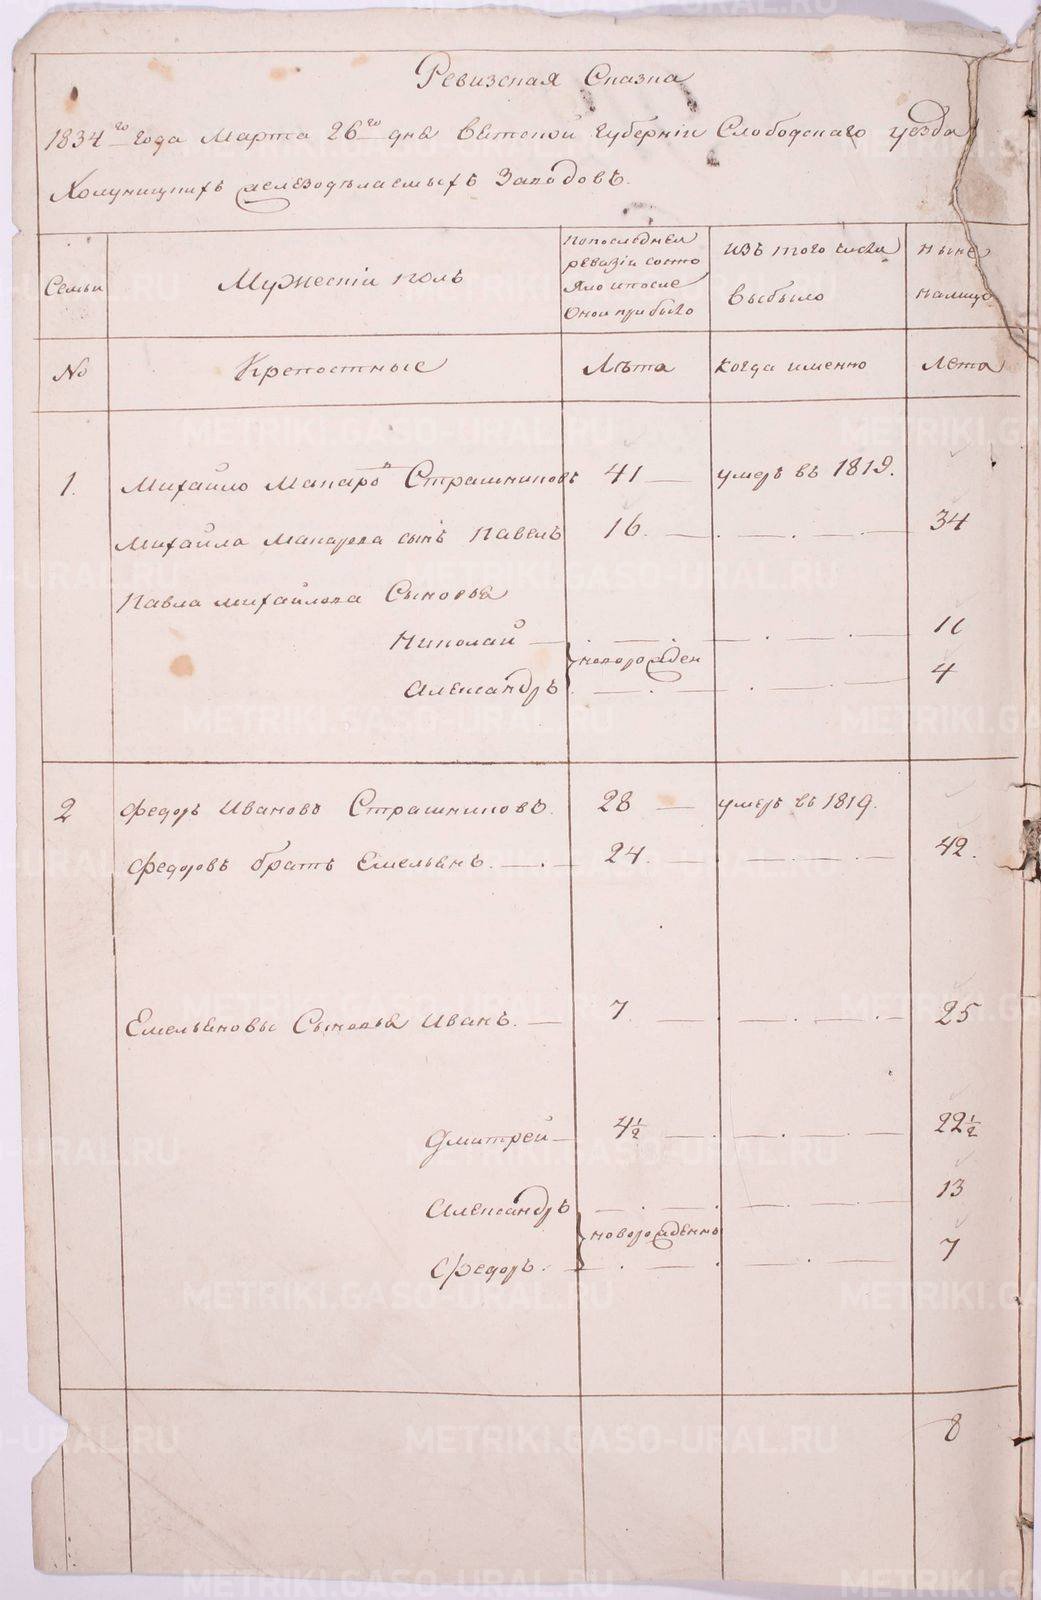 Ревизская Сказка
1834го года Марта 26го дня Вятской губернiи Слободскаго уезда
Холуницкихъ железоделаемыхъ Заводовъ.
Семьи
Мужескiй полъ
По последней
ревизiи состо
яло и после
Оной прибыло
изъ того числа
выбыло
ныне
налицо
No
Крепостные
Лѣта
когда именно
Лета
1.
Михайло Макаровъ Страшниковъ
41
умеръ въ 1819.
Михайла Макарова сынъ Павелъ
16.
34
Павла Михайлова Сыновья
Николай
11
новорожден
Александръ
4
2
Федоръ Ивановъ Страшниковъ.
28
умеръ въ 1819.
Федоровъ братъ Емельянъ.
24.
42.
Емельяновы Сыновья Иванъ.
7.
25
Дмитрей
4½
22½
Александръ
13
новорожденно
Федоръ.
7
8
METRIKI.GASO-URAL.RU